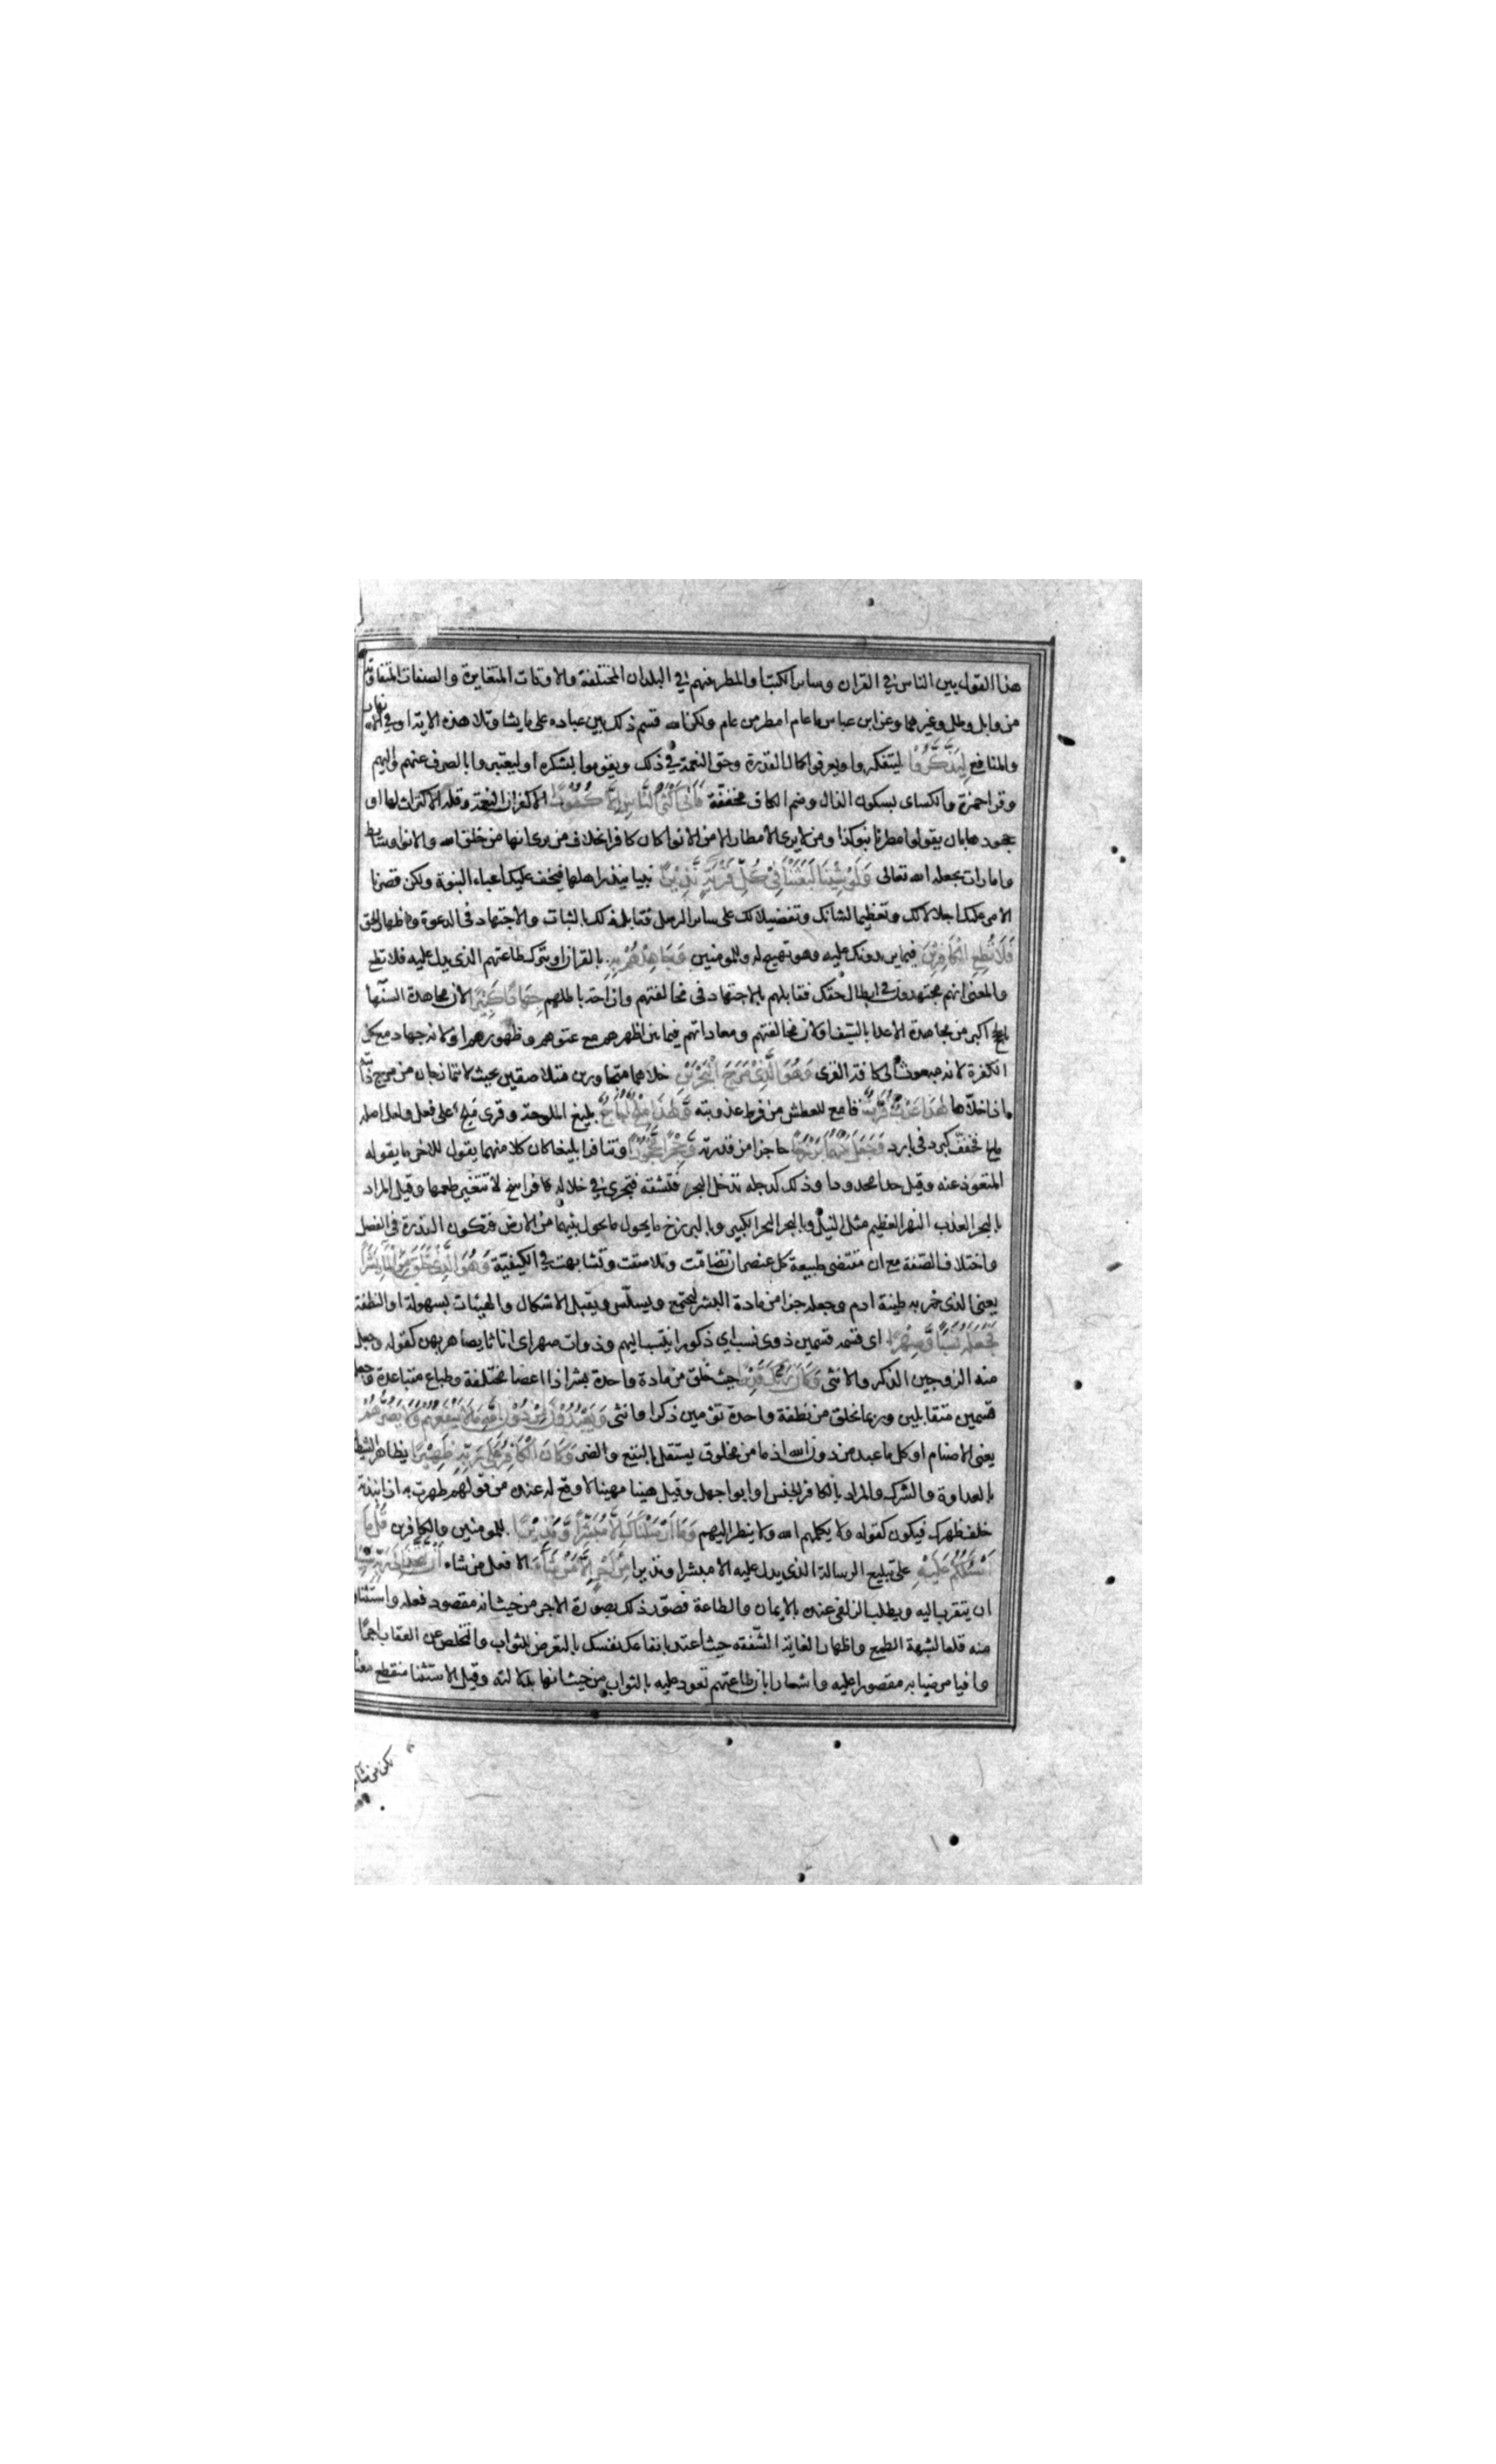 هذا القول بين الناس في القران وسائر الكتب او المطر بينهم في البلدان المختلفة والاوقات المتغايرة والصفات المتفاوتة
من وابل وطل وغيرهما وعن ابن عباس ما عام امطر من عام ولكن الله قسم ذلك بين عباده على ما يشا وتلا هذه الاية او في الانهار
والمنافع لِيَذَّكَّرُوا ليتفكروا ويعرفوا كمال القدرة وحق النعمة في ذلك ويقوموا بشكره او ليعتبروا بالصرف عنهم واليهم
وقرا حمزة والكساى بسكون الذال وضم الكاف مخففة فَأَبَى أَكْثَرُ النَّاسِ إِلَّا كُفُورًا الا كفران النعمة وقلة الاكتراث لها او
جحودها بان يقولوا مطرنا بنو كذا ومن لا يرى الامطار الا من الانوا كان كافرا بخلاف من يرى انها من خلق الله والانوا وسايط
وامارات بجعله الله تعالى وَلَوْ شِئْنَا لَبَعَثْنَا فِي كُلِّ قَرْيَةٍ نَّذِيرًا نبيا ينذر اهلها فيخف عليك اعباء النبوة ولكن قصرنا
الامر عليك اجلالا لك وتعظيما لشانك وتفضيلا لك على سائر الرسل فقابل ذلك بالثبات والاجتهاد في الدعوة واظهار الحق
فَلَا تُطِعِ الْكَافِرِينَ فيما يريدونك عليه وهو تهييج له وللمومنين وَجَاهِدْهُمْ بِهِ بالقران او بترك طاعتهم الذى يدل عليه فلا تطع
والمعنى انهم يجتهدون في ابطال حقك فقابلهم بالاجتهاد في مخالفتهم وازاحة باطلهم جِهَادًا كَبِيرًا لان مجاهدة السفها
بالحجج اكبر من مجاهدة الاعدا بالسيف او لان مخالفتهم ومعاداتهم فيما بين اظهرهم مع عتوهم وظهورهم او لانه جهاد مع كل
الكفرة لانه مبعوث الى كافة القرى وَهُوَ الَّذِي مَرَجَ الْبَحْرَيْنِ خلاهما متجاورين متلاصقين بحيث لا يتمازجان من مرج دابته
اذا خلاها هَذَا عَذْبٌ فُرَاتٌ قامع للعطش من فرط عذوبته وَهَذَا مِلْحٌ أُجَاجٌ بليغ الملوحة وقرى مَلِح على فعل ولعل اصله
مالح فخفف كبرد في بارد وَجَعَلَ بَيْنَهُمَا بَرْزَخًا حاجزا من قدرته وَحِجْرًا مَّحْجُورًا وتنافرا بليغا كان كلا منهما يقول للاخر ما يقوله
المتعوذ عنه وقيل حدا محدودا وذلك كدجلة تدخل البحر فتشقه فتجرى في خلاله فراسخ لا يتغير طعمها وقيل المراد
بالبحر العذب النهر العظيم مثل النيل وبالبحر البحر الكبير وبالبرزخ ما يحول بينهما من الارض فتكون القدرة في الفصل
واختلاف الصفة مع ان مقتضى طبيعة كل عنصر ان تضامت وتلاصقت وتشابهت في الكيفية وَهُوَ الَّذِي خَلَقَ مِنَ الْمَاءِ بَشَرًا
يعنى الذى خمر به طينة ادم وجعله جزا من مادة البشر ليجتمع ويسلس ويقبل الاشكال والهيئات بسهولة او النطفة
فَجَعَلَهُ نَسَبًا وَصِهْرًا اى قسمه قسمين ذوى نسب اى ذكورا ينتسب اليهم وذوات صهر اى اناثا يصاهر بهن كقوله وجعل
منه الزوجين الذكر والانثى وَكَانَ رَبُّكَ قَدِيرًا حيث خلق من مادة واحدة بشرا ذا اعضا مختلفة وطباع متباعدة وجعله
قسمين متقابلين وربما يخلق من نطفة واحدة توءمين ذكرا وانثى وَيَعْبُدُونَ مِنْ دُونِ اللَّهِ مَا لَا يَنْفَعُهُمْ وَلَا يَضُرُّهُمْ
يعنى الاصنام او كل ما عبد من دون الله اذ ما من مخلوق يستقل بالنفع والضر وَكَانَ الْكَافِرُ عَلَى رَبِّهِ ظَهِيرًا يظاهر الشيطان
بالعداوة والشرك والمراد بالكافر الجنس او ابو اجهل وقيل هينا مهينا لا وقع له عنده من قولهم ظهرت به اذا نبذته
خلف ظهرك فيكون كقوله ولا يكلمهم الله ولا ينظر اليهم وَمَا أَرْسَلْنَاكَ إِلَّا مُبَشِّرًا وَنَذِيرًا للمومنين والكافرين قُلْ مَا
أَسْئَلُكُمْ عَلَيْهِ على تبليغ الرسالة الذى يدل عليه الا مبشرا ونذيرا مِنْ أَجْرٍ إِلَّا مَنْ شَاءَ الا فعل من شاء أَنْ يَتَّخِذَ إِلَى رَبِّهِ سَبِيلًا
ان يتقرب اليه ويطلب الزلفى عنده بالايمان والطاعة فصور ذلك بصورة الاجر من حيث انه مقصود فعله واستثناه
منه قلعا لشبهة الطمع واظهارا لغاية الشفقة حيث اعتد بانفاعك نفسك بالتعرض للثواب والتخلص عن العقاب اجرا
وافيا مرضيا به مقصورا عليه واشعارا بان طاعتهم تعود عليه بالثواب من حيث انها بدلالته وقيل الاستثنا منقطع معناه
لكن من شاء